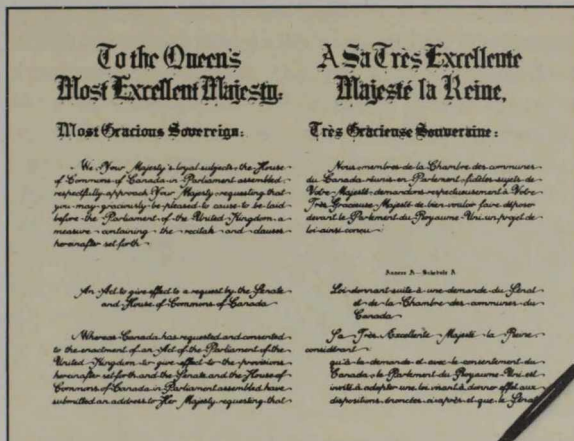 To the Queen's
Most Excellent Majesty:
Most Gracious Sovereign:
We, Your Majesty's loyal subjects, the House
of Commons of Canada in Parliament assembled,
respectfully approach Your Majesty, requesting that
you may graciously be pleased to cause to be laid
before the Parliament of the United Kingdom a
measure containing the recitals and clauses
hereinafter set forth
An Act to give effect to a request by the Senate
and House of Commons of Canada
Whereas Canada has requested and consented
to the enactment of an Act of the Parliament of the
United Kingdom to give effect to the provisions
hereinafter set forth and the Senate and the House of
Commons of Canada in Parliament assembled have
submitted an address to Her Majesty requesting that
A Sa Très Excellente
Majesté la Reine,
Très Gracieuse Souveraine:
Nous, membres de la Chambre des communes
du Canada réunis en Parlement, fidèles sujets de
Votre Majesté, demandons respectueusement à Votre
Très Gracieuse Majesté de bien vouloir faire déposer
devant le Parlement du Royaume-Uni un projet de
loi ainsi conçu
Annexe A—Schedule A
Loi donnant suite à une demande du Sénat
et de la Chambre des communes du
Canada
Sa Très Excellente Majesté la Reine,
considérant
qu'à la demande et avec le consentement du
Canada, le Parlement du Royaume-Uni est
invité à adopter une loi visant à donner effet aux
dispositions énoncées ci-après et que le Sénat